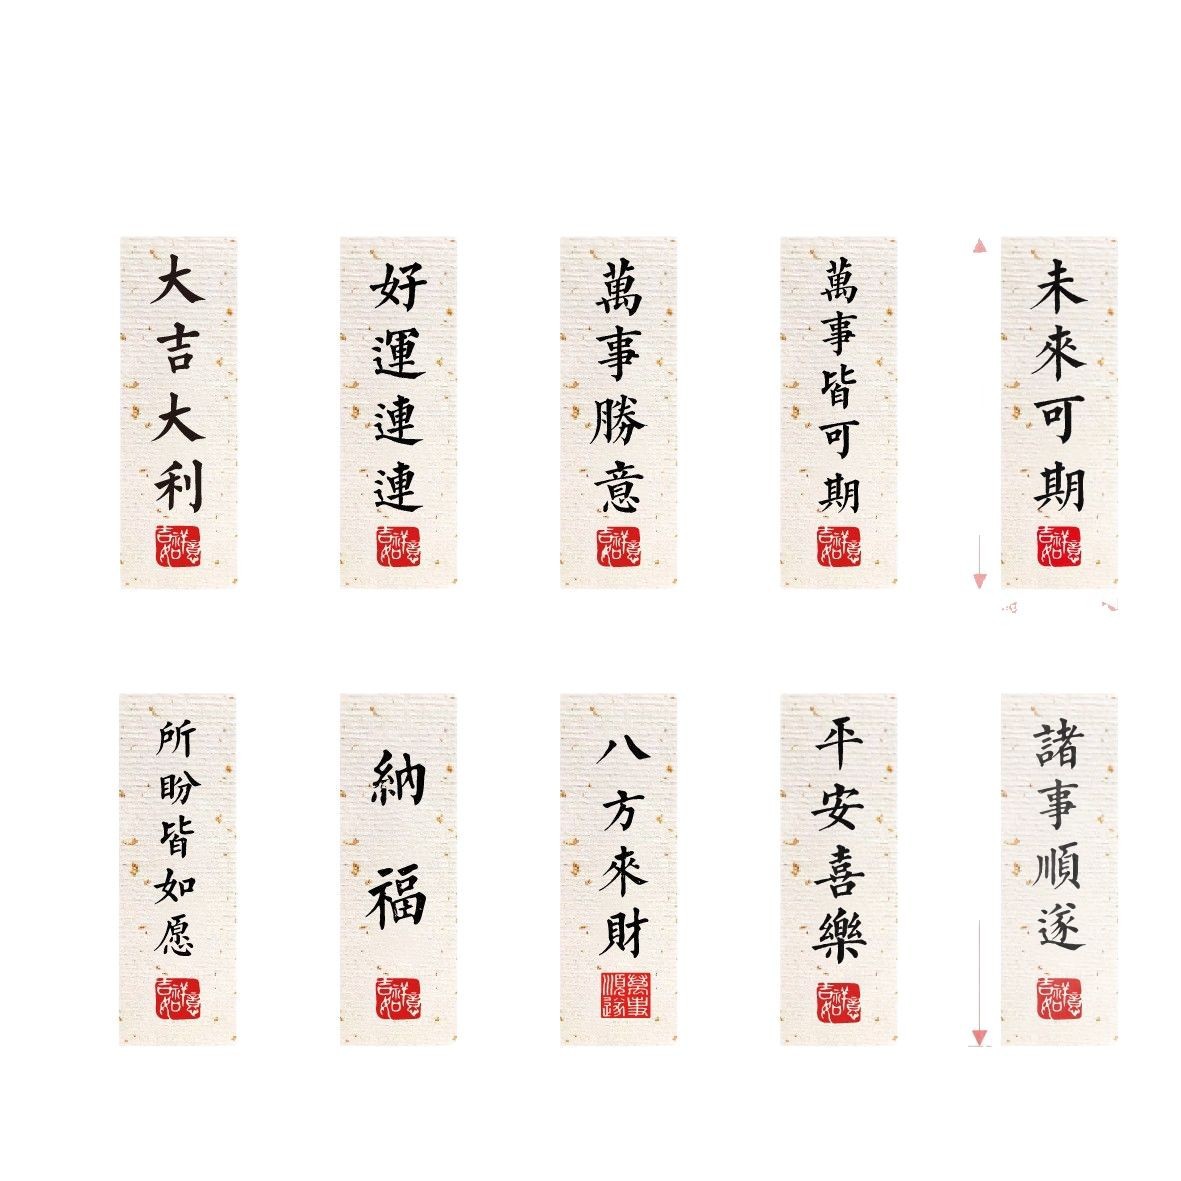 大吉大利
吉祥如意
好運連連
吉祥如意
萬事勝意
吉祥如意
萬事皆可期
吉祥如意
未來可期
吉祥如意
所盼皆如愿
吉祥如意
納福
吉祥如意
八方來財
萬事順遂
平安喜樂
吉祥如意
諸事順遂
吉祥如意